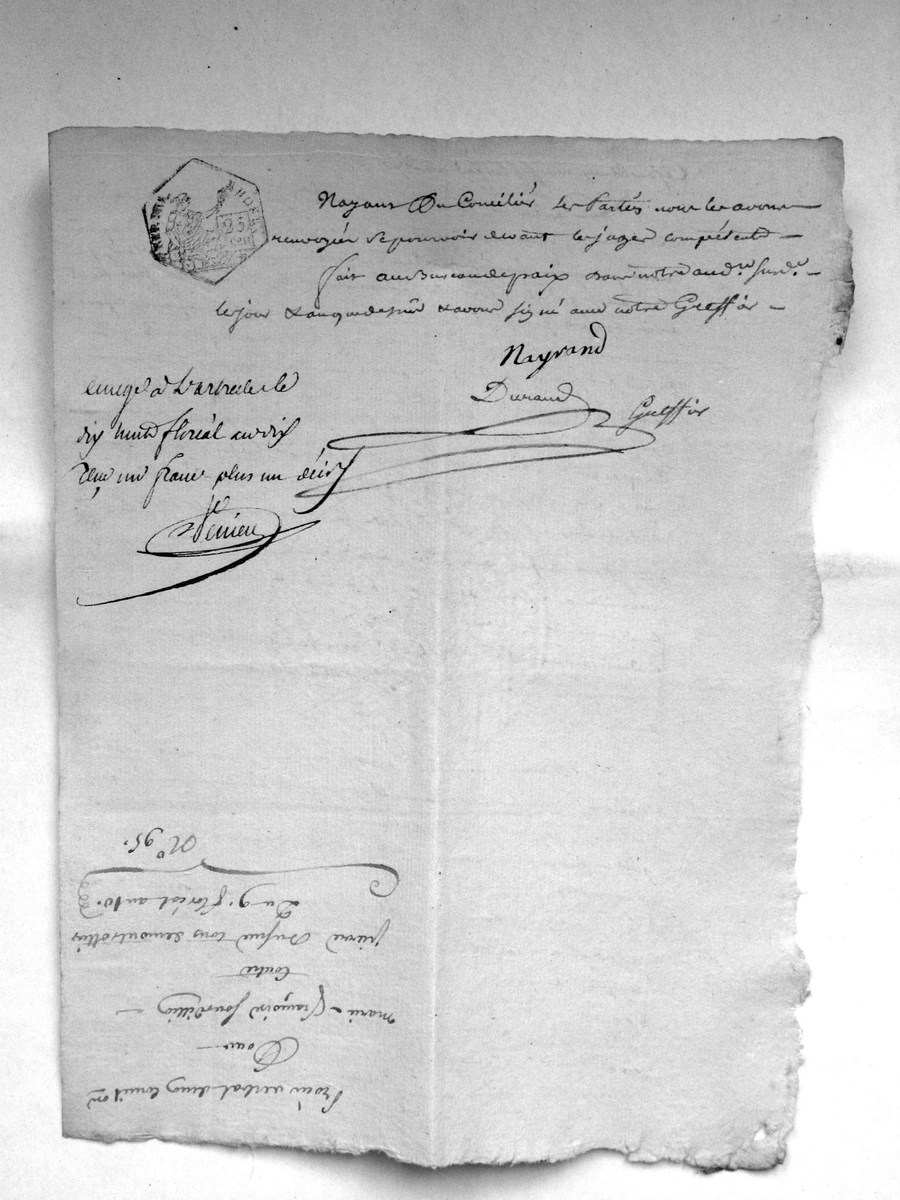 REP. FRA.
25
CEN
Nayant Pu Conciliér les Partiés nous les avons
renvoyées se pourvoir devant les juges compétents
fait au Bureau de paix dans notre aud.re susd.e
le jour & an que dessus & avons signé avec notre Greffier
Neyrand
Durand Greffier
enregé à L'arbresle le
dix huit floréal an dix
Reçu un franc plus un décis
Perrier
Procès verbal de non Concil.on
Pour
marie Françoise
Contre
pierre
Du 9. floréal an 10.
N.o 95.